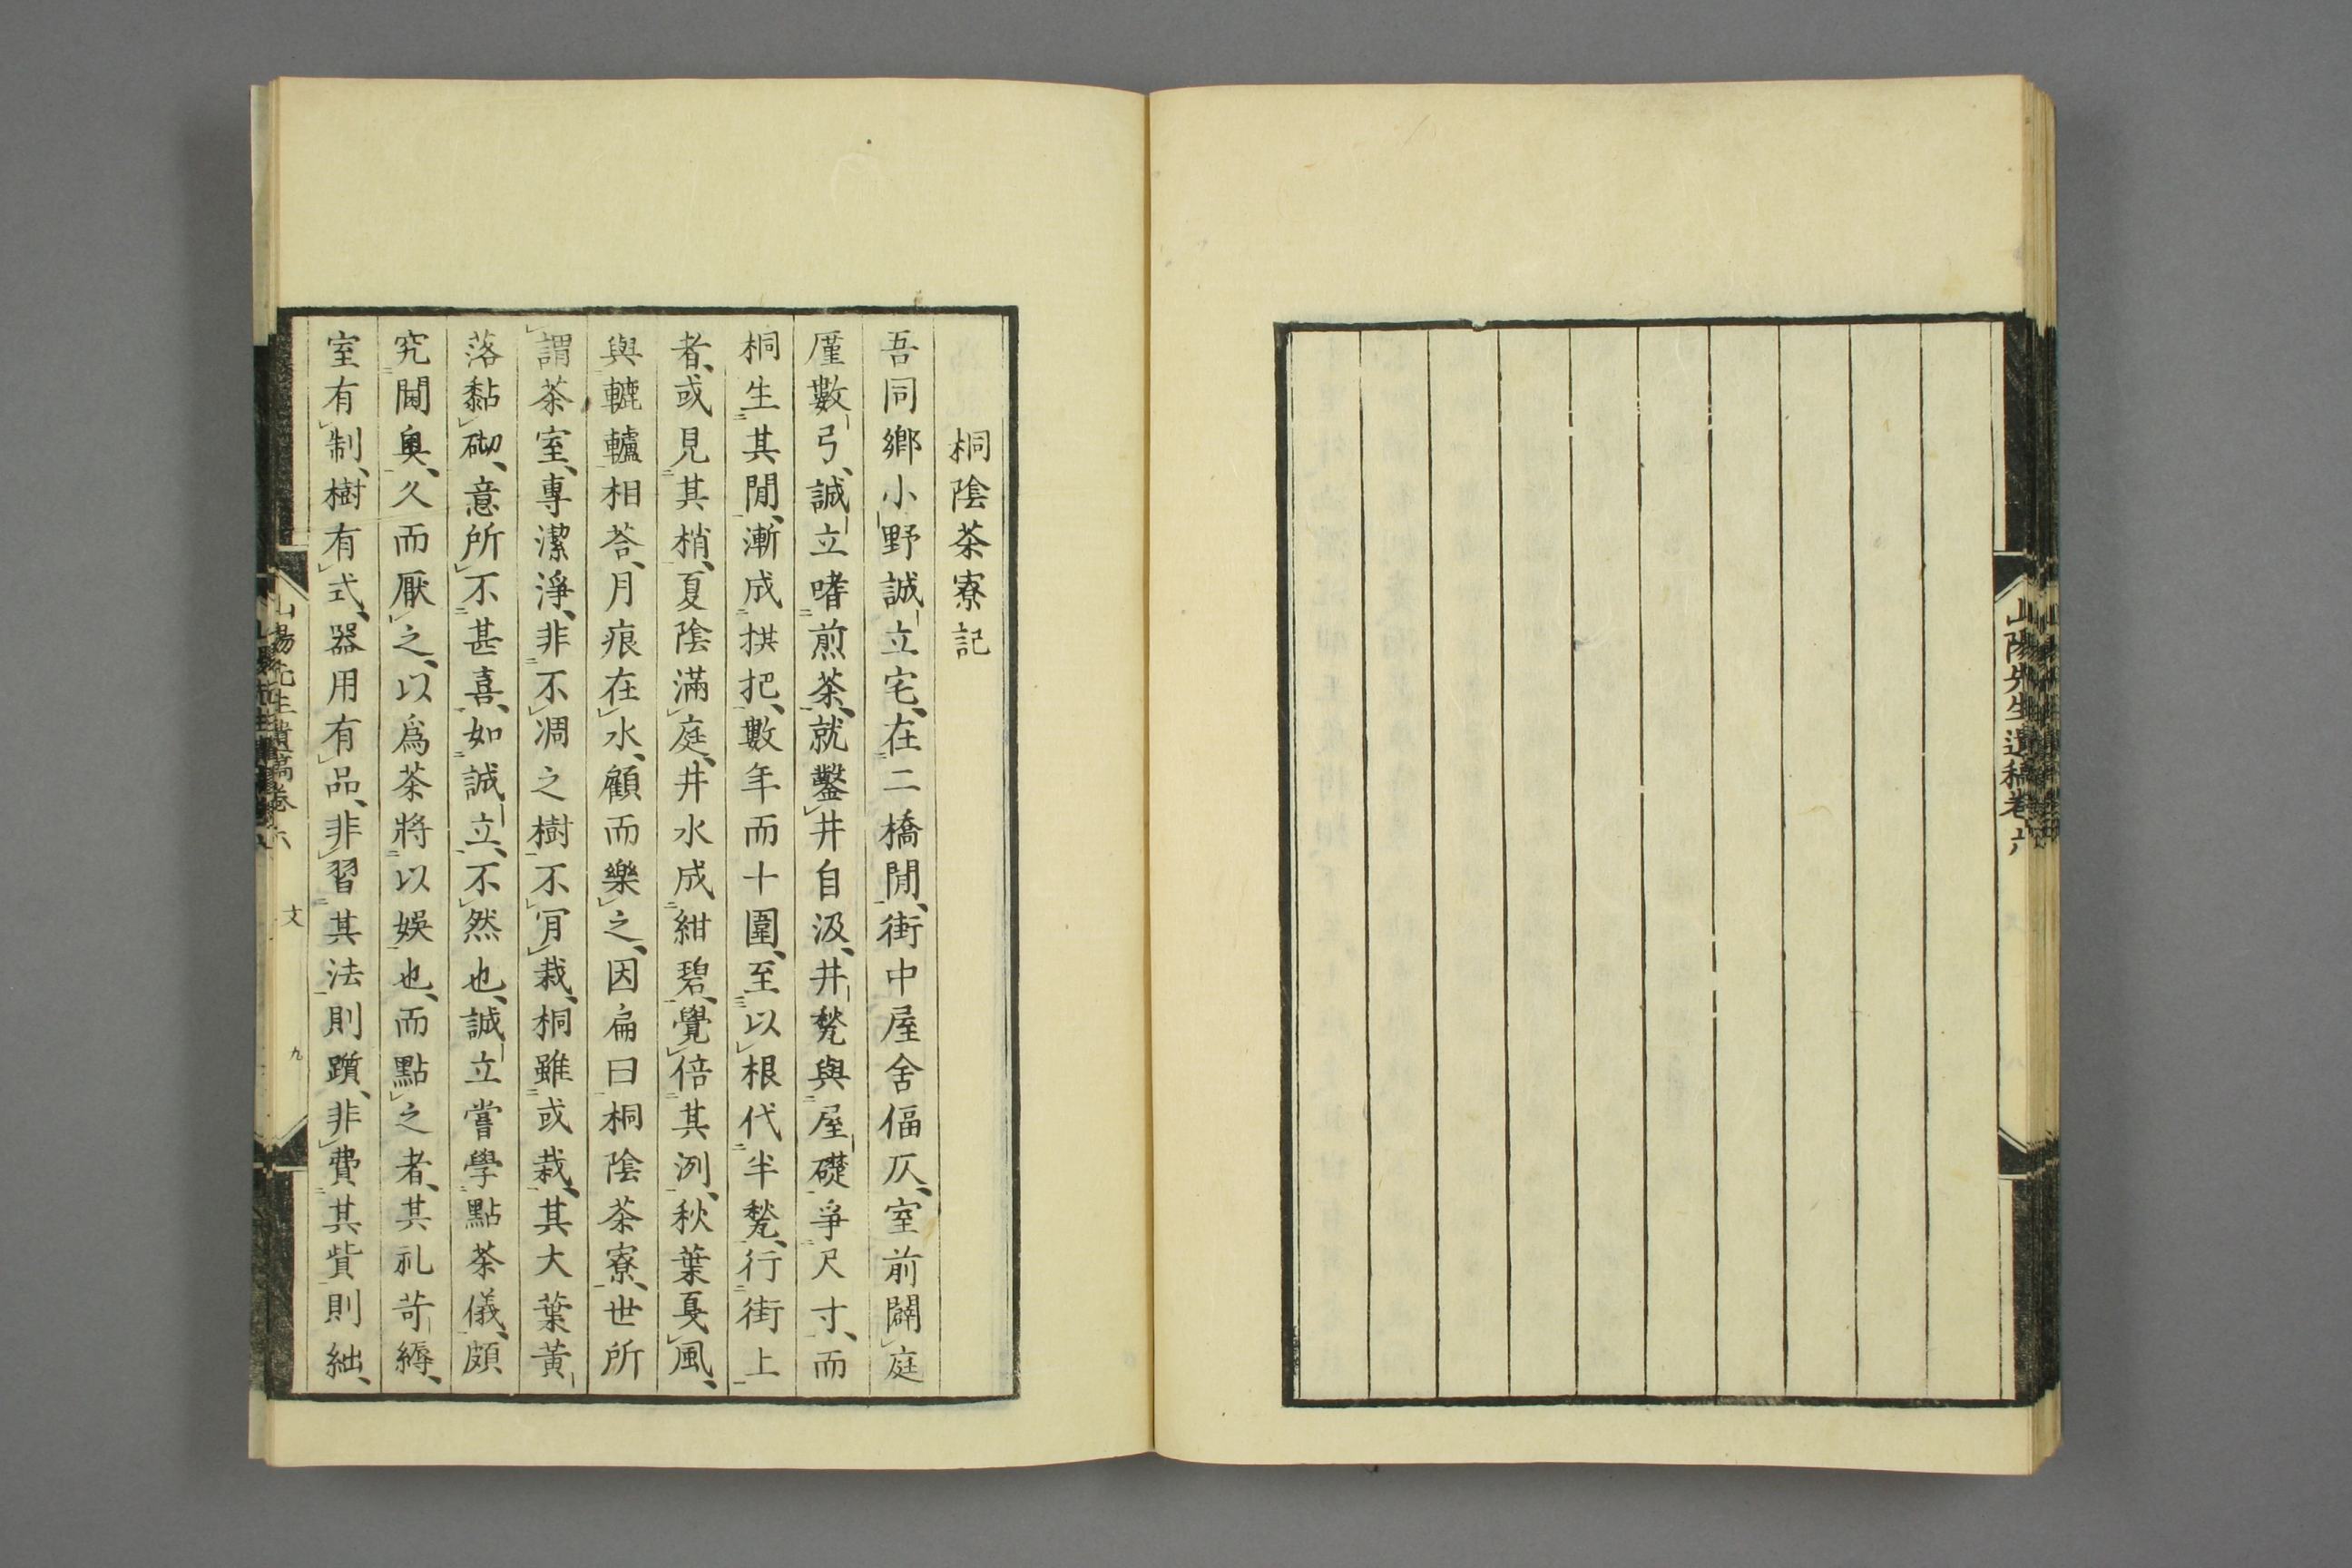 山陽先生遺稿卷六
桐陰茶寮記
吾同鄉小野誠立宅、在二橋閒、街中屋舍偪仄、室前闢庭
厪數弓、誠立嗜煎茶、就鑿井自汲、井甃與屋礎爭尺寸、而
桐生其閒、漸成拱把、數年而十圍、至以根代半甃、行街上
者、或見其梢、夏陰滿庭、井水成紺碧、覺倍其洌、秋葉戛風、
與轆轤相荅、月痕在水、顧而樂之、因扁曰桐陰茶寮、世所
謂茶室、專潔淨、非不凋之樹不肎栽、桐雖或栽、其大葉黃
落黏砌、意所不甚喜、如誠立、不然也、誠立嘗學點茶儀、頗
究閫奧、久而厭之、以爲茶將以娛也、而點之者、其礼苛縟、
室有制、樹有式、器用有品、非習其法則躓、非費其貲則絀、
山陽先生遺稿卷六 文 九